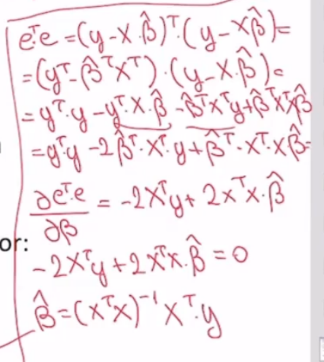 eᵀe = (y - X·β̂)ᵀ·(y - Xβ̂) =
= (yᵀ - β̂ᵀXᵀ)·(y - X·β̂) =
= yᵀ·y - yᵀ·X·β̂ - β̂ᵀXᵀy + β̂ᵀXᵀXβ̂
= yᵀy - 2β̂ᵀ·Xᵀ·y + β̂ᵀ·Xᵀ·Xβ̂ =
∂eᵀ·e / ∂β = -2Xᵀy + 2XᵀX·β̂
or:
-2Xᵀy + 2XᵀX·β̂ = 0
β̂ = (XᵀX)⁻¹ Xᵀ·y